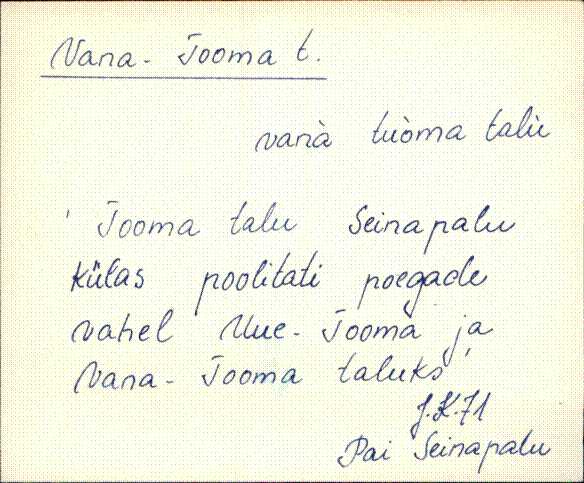 Vana-Tooma t.
vanà tuòma talù
' Tooma talu Seinapalu
külas poolitati poegade
vahel Uue-Tooma ja
Vana-Tooma taluks'
J.K.71
Pai Seinapalu